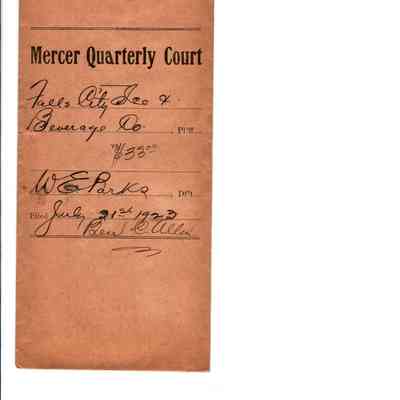 Mercer Quarterly Court
Falls City Ice &
Beverage Co , Plff.
$33.00
W E Parks , Dft.
Filed July 21st 1923
Ben C Allin